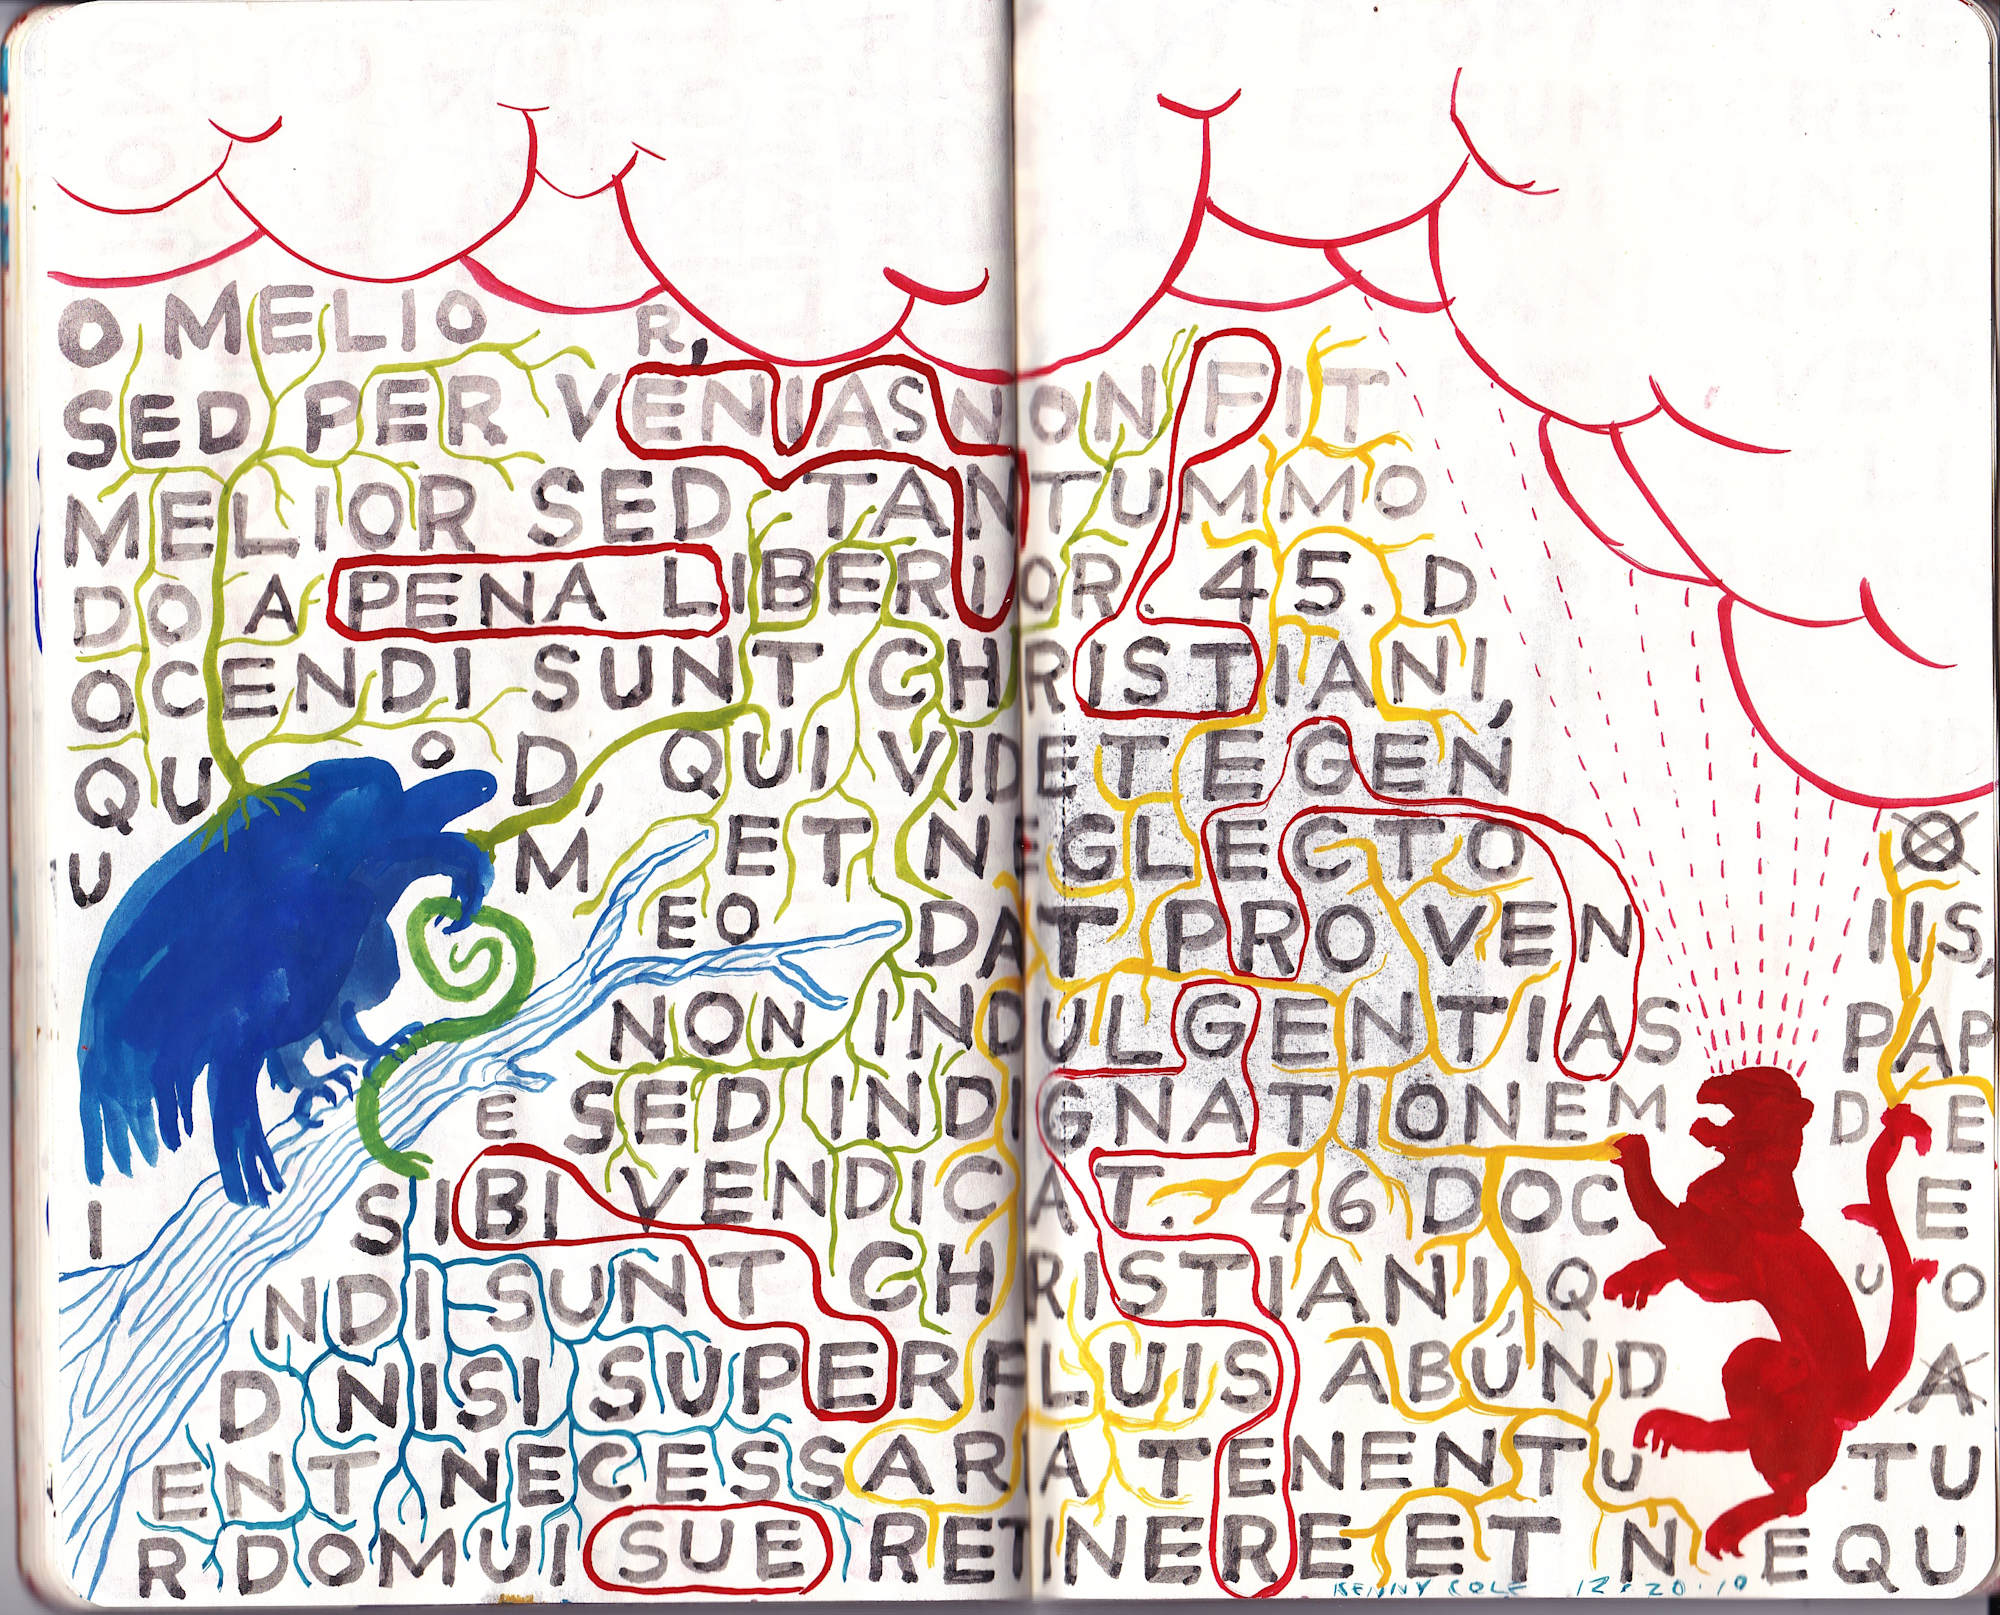 O MELIO R,
SED PER VENIAS NON FIT
MELIOR SED TANTUMMO
DO A PENA LIBERIOR. 45. D
OCENDI SUNT CHRISTIANI,
QU O D, QUI VIDET EGEN
U M ET NEGLECTO O
EO DAT PRO VEN IIS,
NON INDULGENTIAS PAP
E SED INDIGNATIONEM D E
I SIBI VENDICAT. 46 DOC E
NDI SUNT CHRISTIANI, Q U O
D NISI SUPERFLUIS ABUND A
ENT NECESSARIA TENENTU TU
R DOMUI SUE RETINERE ET NEQU
KENNY COLE 12.20.10